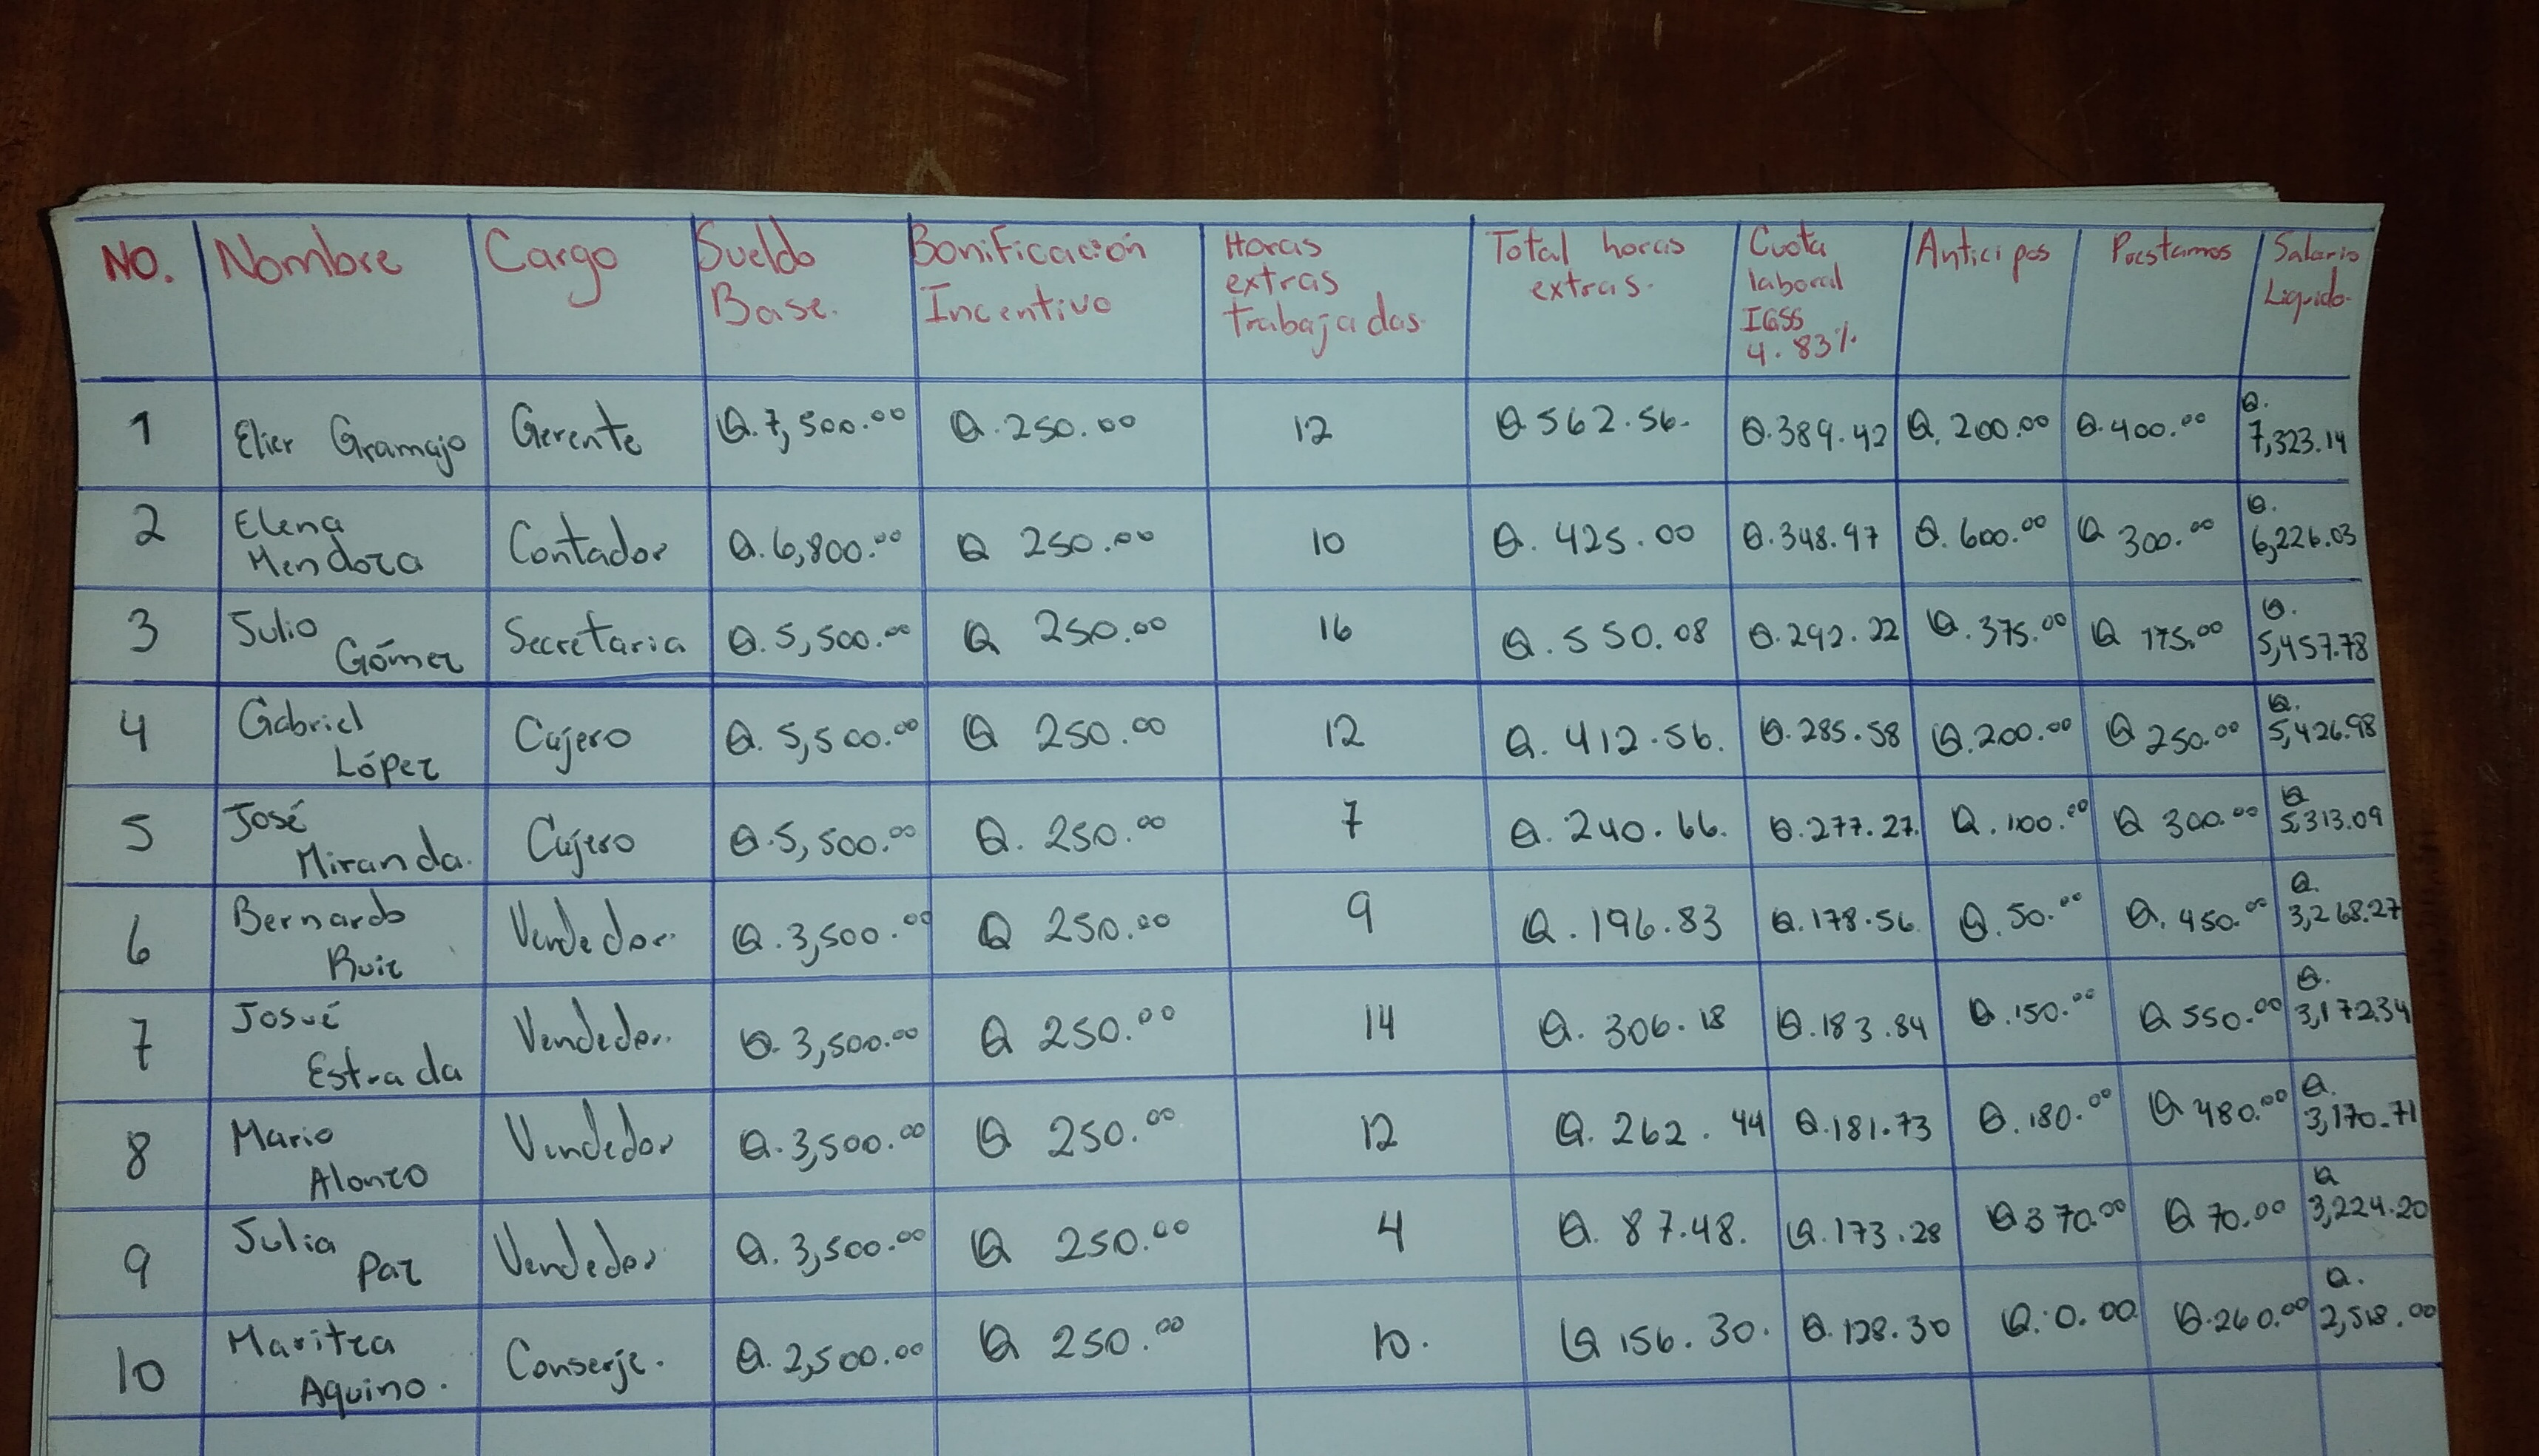 No. Nombre Cargo Sueldo Base. Bonificación Incentivo Horas extras trabajadas. Total horas extras. Cuota laboral IGSS 4.83% Anticipos Prestamos Salario Liquido.
1 Elier Gramajo Gerente Q.7,500.00 Q.250.00 12 Q 562.56. Q.389.42 Q.200.00 Q.400.00 Q.7,323.14
2 Elena Mendoza Contador Q.6,800.00 Q 250.00 10 Q.425.00 Q.348.97 Q.600.00 Q 300.00 Q.6,226.03
3 Julio Gómez Secretaria Q.5,500.00 Q 250.00 16 Q.550.08 Q.292.22 Q.375.00 Q 175.00 Q.5,457.78
4 Gabriel López Cajero Q.5,500.00 Q 250.00 12 Q.412.56. Q.285.58 Q.200.00 Q 250.00 Q.5,426.98
5 José Miranda. Cajero Q.5,500.00 Q.250.00 7 Q.240.66. Q.277.27. Q.100.00 Q 300.00 Q 5,313.09
6 Bernardo Ruiz Vendedor. Q.3,500.00 Q 250.00 9 Q.196.83 Q.178.56 Q.50.00 Q.450.00 Q.3,268.27
7 Josué Estrada Vendedor. Q.3,500.00 Q 250.00 14 Q.306.18 Q.183.84 Q.150.00 Q 550.00 Q.3,172.34
8 Mario Alonzo Vendedor Q.3,500.00 Q 250.00 12 Q.262.44 Q.181.73 Q.180.00 Q 480.00 Q.3,170.71
9 Julia Paz Vendedor Q.3,500.00 Q 250.00 4 Q.87.48. Q.173.28 Q 370.00 Q 70.00 Q 3,224.20
10 Maritza Aquino. Conserje. Q.2,500.00 Q 250.00 10. Q 156.30. Q.128.30 Q.0.00 Q.260.00 Q.2,518.00